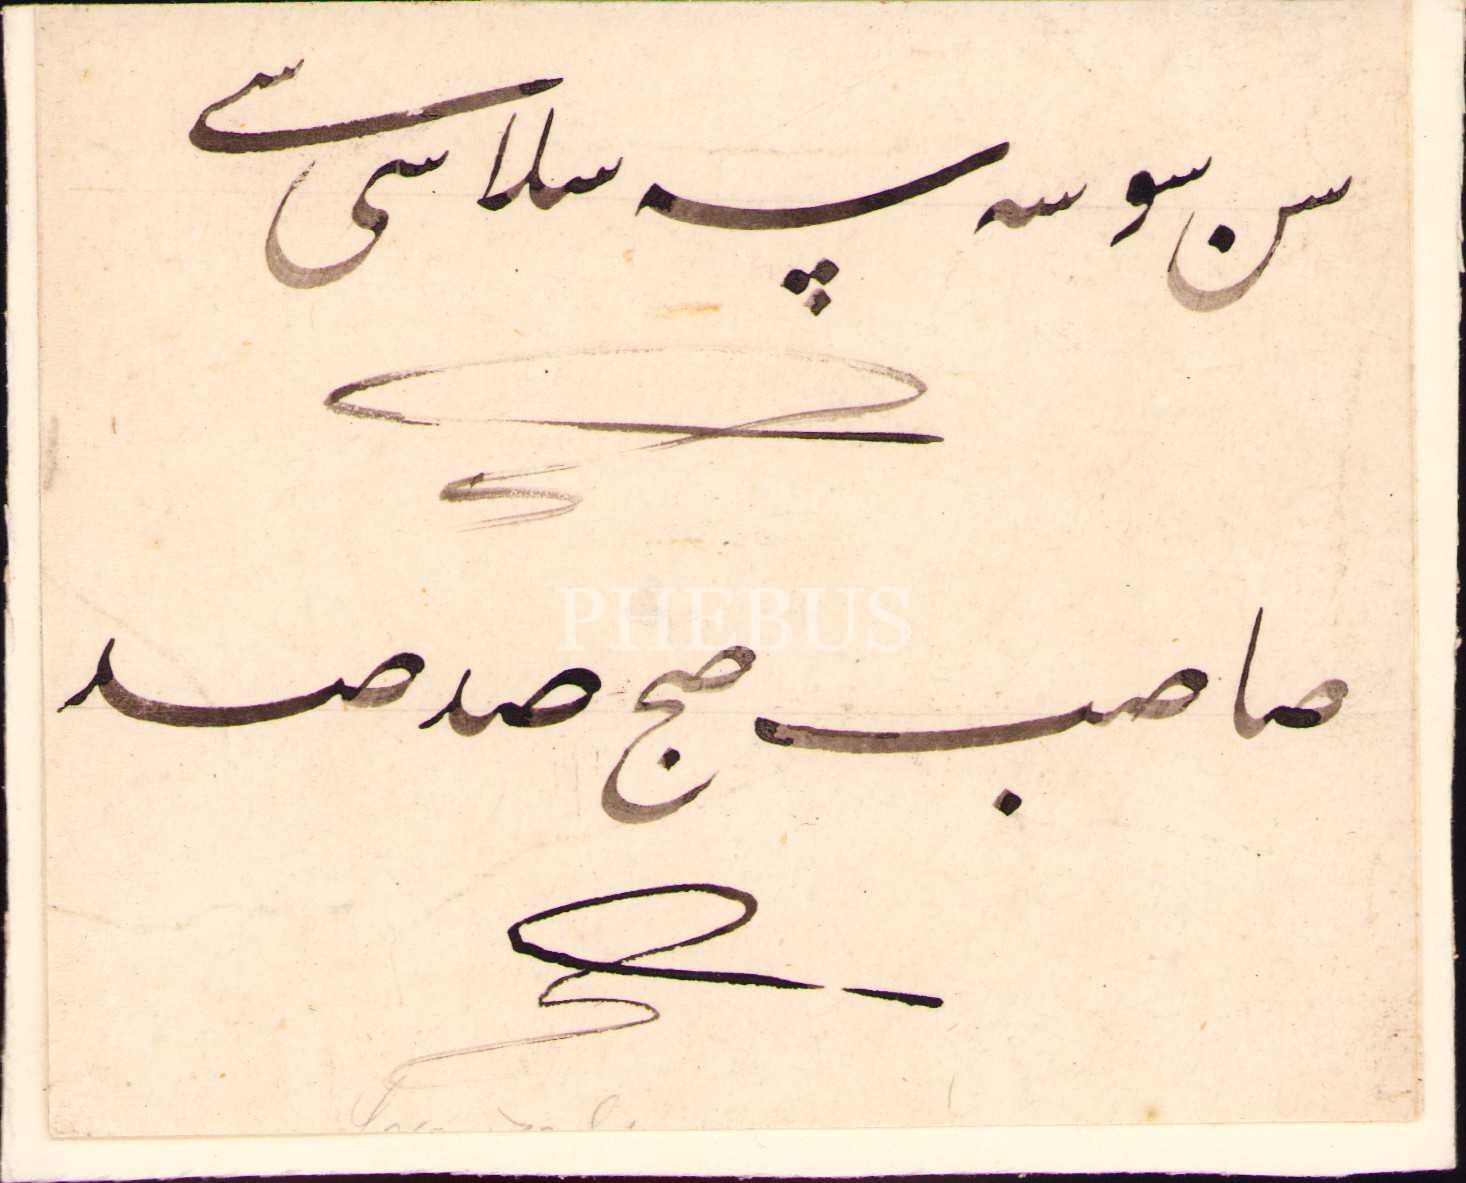 سن سو سه سپه سلا سی سے
PHEBUS
صا صب صج صد صد